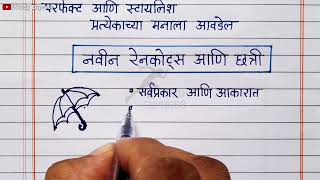 परफेक्ट आणि स्टायलिश
प्रत्येकाच्या मनाला आवडेल
नवीन रेनकोट्स आणि छत्री
सर्वप्रकार आणि आकारात